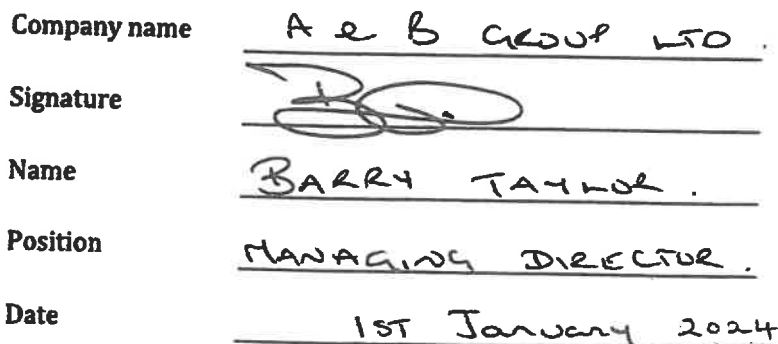 Company name A & B GROUP LTD.
Signature
Name BARRY TAYLOR.
Position MANAGING DIRECTOR.
Date 1ST January 2024